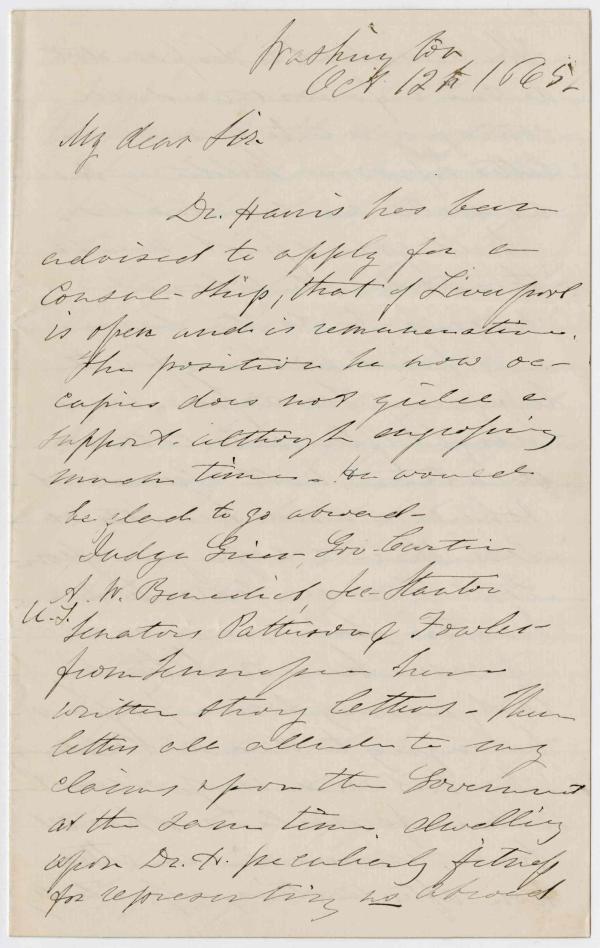 Washington
Oct 12th 1865.
My dear Sir.
Dr. Harris has been
advised to apply for a
Consul-ship, that of Liverpool
is open and is remunerative.
The position he now oc-
cupies does not yield a
support. although engrossing
much time. He would
be glad to go abroad-
Judge Grier, Gov Curtin
A. W. Benedict, Sec Stanton
U.S.
Senators Patterson & Fowler
from Tennessee have
written strong letters. These
letters all allude to my
claims upon the Government
at the same time, dwelling
upon Dr. H. peculiarly fitness
for representing us abroad